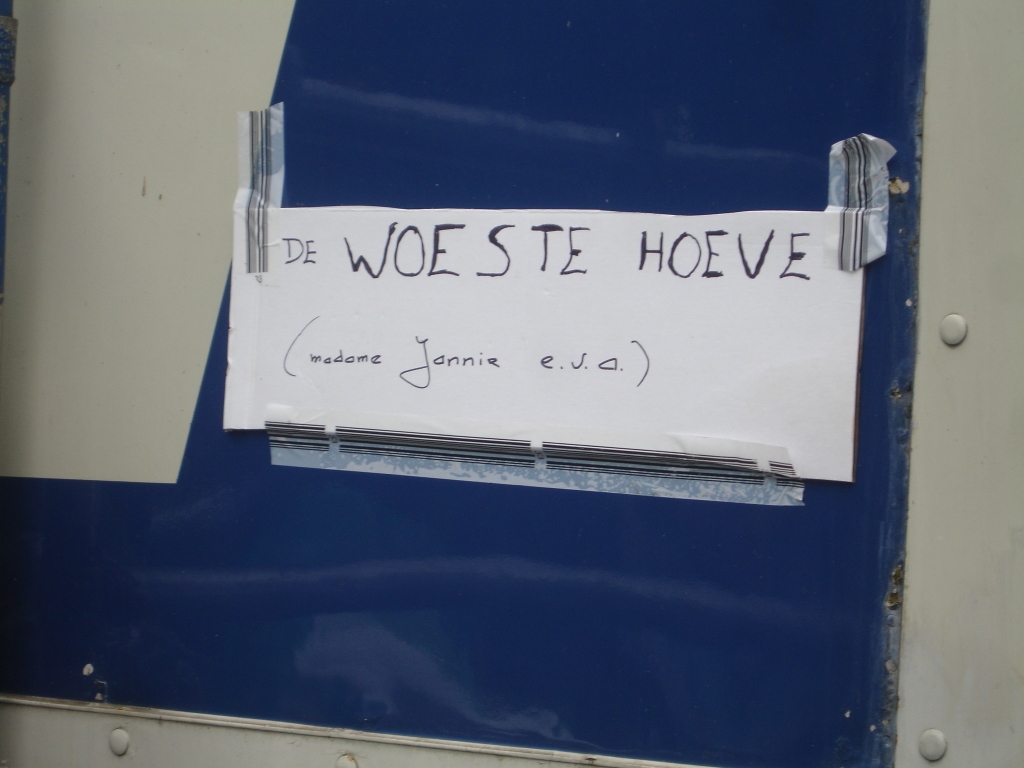 DE WOESTE HOEVE
(madame Jannie e.v.a.)